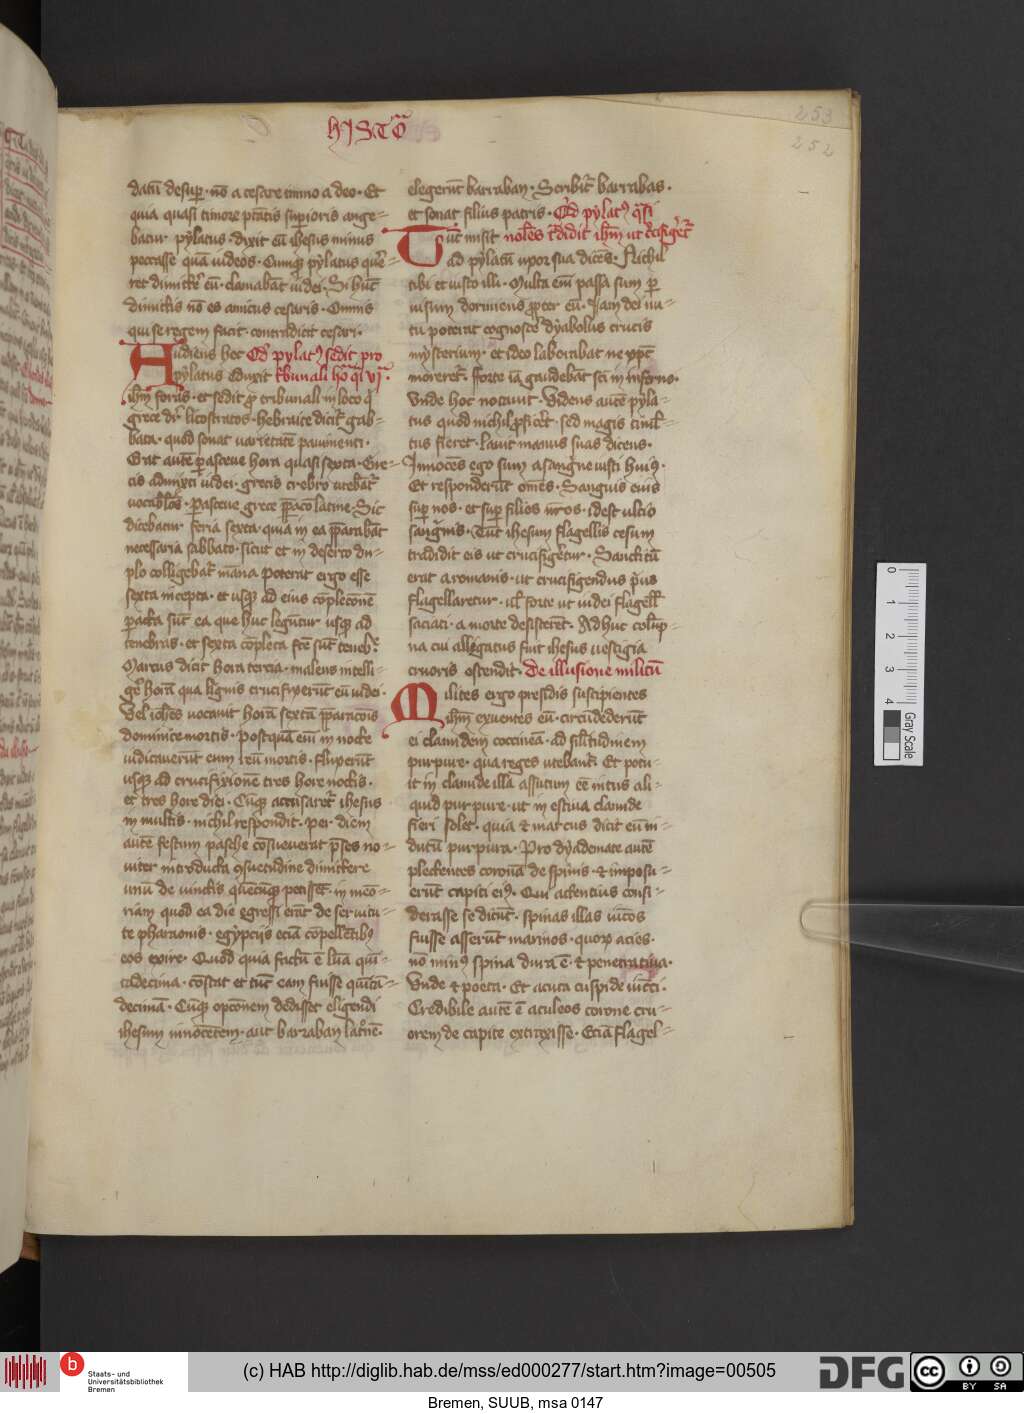 253
252
hJSTO᷒
datū desup̱ · nō a cesare ĩmmo a deo · Et
quia quasi timore ptātis sup̱ioris ange-
batur pylatus · dixit eū ihesus minus
peccasse quā iudeos · Cumqꝫ pylatus que᷒-
ret dimitte᷒ eū · clamabāt iudei · Si hūc
dimittis nō es amicus cesaris · Omnis
qui se regem facit · contradicit cesari ·
Audiens hec Qd᷒ pylatꝰ sedit pro
pylatus eduxit t᷒bunali ho᷒ q̄i vj ·
ihm̄ foras · et sedit ꝓ tribunali in loco q̄
grece dr᷒ licostratos · hebraice dicit᷒ gab-
bata · quod sonat uarietatē pauimenti ·
Erat autē ꝑasceue hora quasi sexta · Gre-
cis admixti iudei · grecis crebro utebāt᷒
uocabl̄os · ꝑasceue grece p̄ꝑaco latine · Sic
dicebatur feria sexta · quia in ea p̄ꝑarabāt
necessaria sabbato · sicut et in deserto du-
plo colligebāt᷒ māna Poterat ergo esse
sexta incepta · et usqꝫ ad eius cōplecōnē
ꝑacta sūt ea que huc legūtur usqꝫ ad
tenebras · et sexta cōpleta fcē sūt teneb᷒ꝫ
Marcus dicit hora tercia · malens intelli-
ge᷒ horā qua lignis crucifixerūt eū iudei ·
Vel ioh̄es uocauit horā sextā p̄ꝑaracōis
dominice mortis · Postquā eni᷒ in nocte
iudicauerūt eum reū mortis · fluxerūt
usqꝫ ad crucifixionē tres hore noctis ·
et tres hore diei · Cūqꝫ accusaret᷒ ihesus
in multis · nichil respondit · per diem
autē festum pasche cōsueuerat p̄ses no-
uiter introducta ꝯsuetudine dimittere
unū de uinctis quēcūqꝫ petissēt · in meō-
riam quod ea die egressi erāt de seruitu-
te pharaonis · egypciis eciā cōpellētibꝰ
eos exire · Quod quia factū ē lūa quī-
tadecima · cōstat et tūc eam fuisse quītā-
decimā · Cūqꝫ opcōnem dedisset eligendi
ihesum innocētem · aut barraban latōnē ·
elegerūt barraban · Scribit᷒ barrabas ·
et sonat filius patris · Qd᷒ pylatꝰ q̄si
Tūc misit nolēs t᷒didit ihm̄ ut c᷒cifige᷒t᷒
ad pylatū uxor sua dicēs · Nichil
tibi et iusto illi · Multa eni᷒ passa sum ꝑ
uisum dormiens ꝓpter eū · Iam dei nu-
tu poterat cognosce᷒ dyabolus crucis
mysterium · et ideo laborabat ne xpc̄
moreret᷒ · Forte iā gaudebāt sci᷒ in inferno ·
Vnde hoc notauit · Videns autē pyla-
tus quod nichil ꝓficēt᷒ · sed magis tūml᷒-
tus fieret · lauit manus suas dicens ·
Innocēs ego sum a sangⁱne iusti huiꝰ ·
Et responderūt om̄es · Sanguis euis
sup̱ nos · et sup̱ filios nr̄os · idest ultio
sangⁱnis · Tūc ihesum flagellis cesum
tradidit eis ut crucifige᷒tur · Sanctitū
erat a romanis · ut crucifigendus p̄us
flagellaretur · ul᷒ forte ut iudei flagell᷒
saciati · a morte desisterēt · Adhuc colūp-
na cui alligatus fuit ihesus uestigia
cruoris ostendit · De illusione militū
Milites ergo presidis suscipientes
ihm̄ exuentes eū · circūdederūt
ei clamidem coccineā · ad sil̄itudiniem
purpure · qua reges utebant᷒ · Et potu-
it in clamide illa assutum eē intus ali-
quid purpure · ut in estiua clamide
fieri solet · quia ⁊ marcus dicit eū in-
dutū purpura · Pro dyademate autē
plectentes coronā de spinis · ⁊ imposu-
erūt capiti eiꝰ · Qui actentius consi-
derasse se dicūt · spinas illas iūcos
fuisse asserūt marinos · quoꝝ acies ·
nō minꝰ spina dura ē · ⁊ penetratiua ·
Vnde ⁊ poeta · Et acuta cuspide iūcci ·
Credibile autē ē aculeos corone cru-
orem de capite extraxisse · Eciā flagel-
0
1
2
3
4
Gray Scale
b
Staats- und
Universitätsbibliothek
Bremen
(c) HAB http://diglib.hab.de/mss/ed000277/start.htm?image=00505
DFG
cc
BY SA
Bremen, SUUB, msa 0147